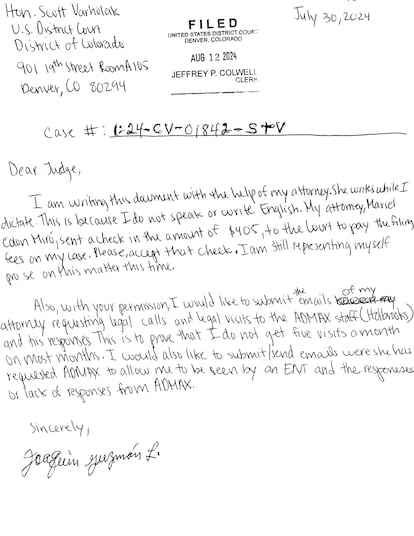 Hon. Scott Varholak
July 30, 2024
U.S. District Court
District of Colorado
901 19th Street Room A105
Denver, CO 80294
FILED
UNITED STATES DISTRICT COURT
DENVER, COLORADO
AUG 12 2024
JEFFREY P. COLWELL
CLERK
Case #: 1:24-CV-01842-STV
Dear Judge,
I am writing this document with the help of my attorney. She writes while I
dictate. This is because I do not speak or write English. My attorney, Mariel
Colón Miró, sent a check in the amount of $405, to the Court to pay the filing
fees on my case. Please, accept that check. I am still representing myself
pro se on this matter this time.
Also, with your permission, I would like to submit the emails of my
attorney requesting legal calls and legal visits to the ADMAX staff (Holbrooks)
and his responses. This is to prove that I do not get five visits a month
on most months. I would also like to submit/send emails were she has
requested ADMAX to allow me to be seen by an ENT and the responses
or lack of responses from ADMAX.
Sincerely,
Joaquin Guzmán L.